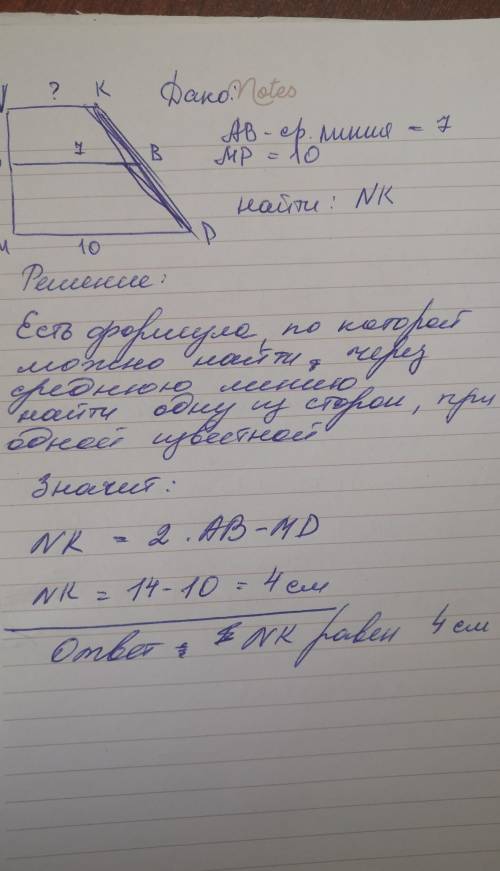 ? K Дано: Notes
7 B АВ - ср. линия = 7
МР = 10
найти: NK
M 10 P
Решение:
Есть формула, по которой
можно найти, через
среднюю линию
найти одну из сторон, при
одной известной
Значит:
NK = 2 · AB - MD
NK = 14 - 10 = 4 см
Ответ: NK равен 4 см